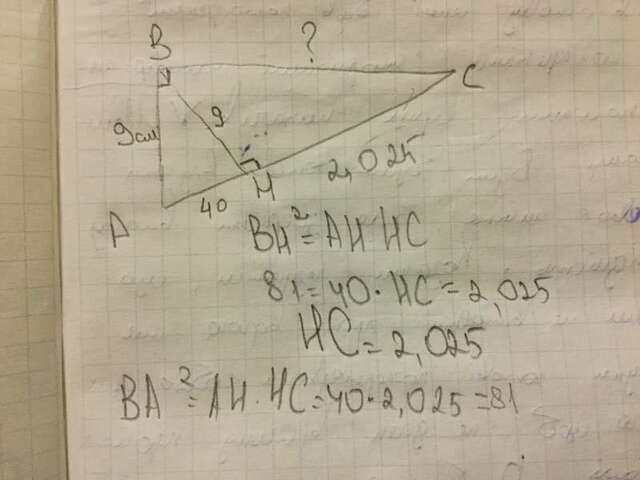 B
?
C
9см
9
2,025
H
40
A
BH²=AH HC
81=40·HC=2,025
HC=2,025
BA²=AH·HC=40·2,025=81